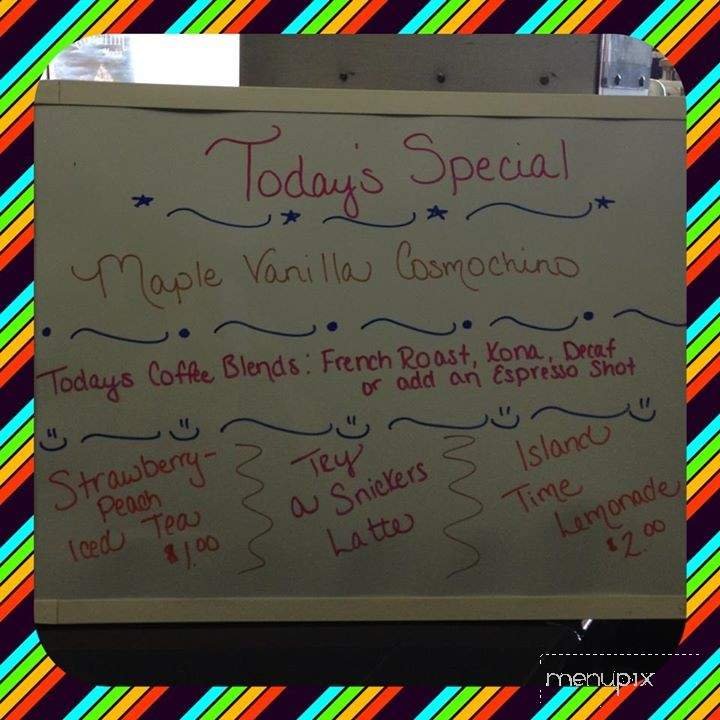 Today's Special
Maple Vanilla Cosmochino
Todays Coffee Blends: French Roast, Kona, Decaf
or add an Espresso Shot
Strawberry-
Peach
Iced Tea
$1.00
Try
a Snickers
Latte
Island
Time
Lemonade
$2.00
menupix